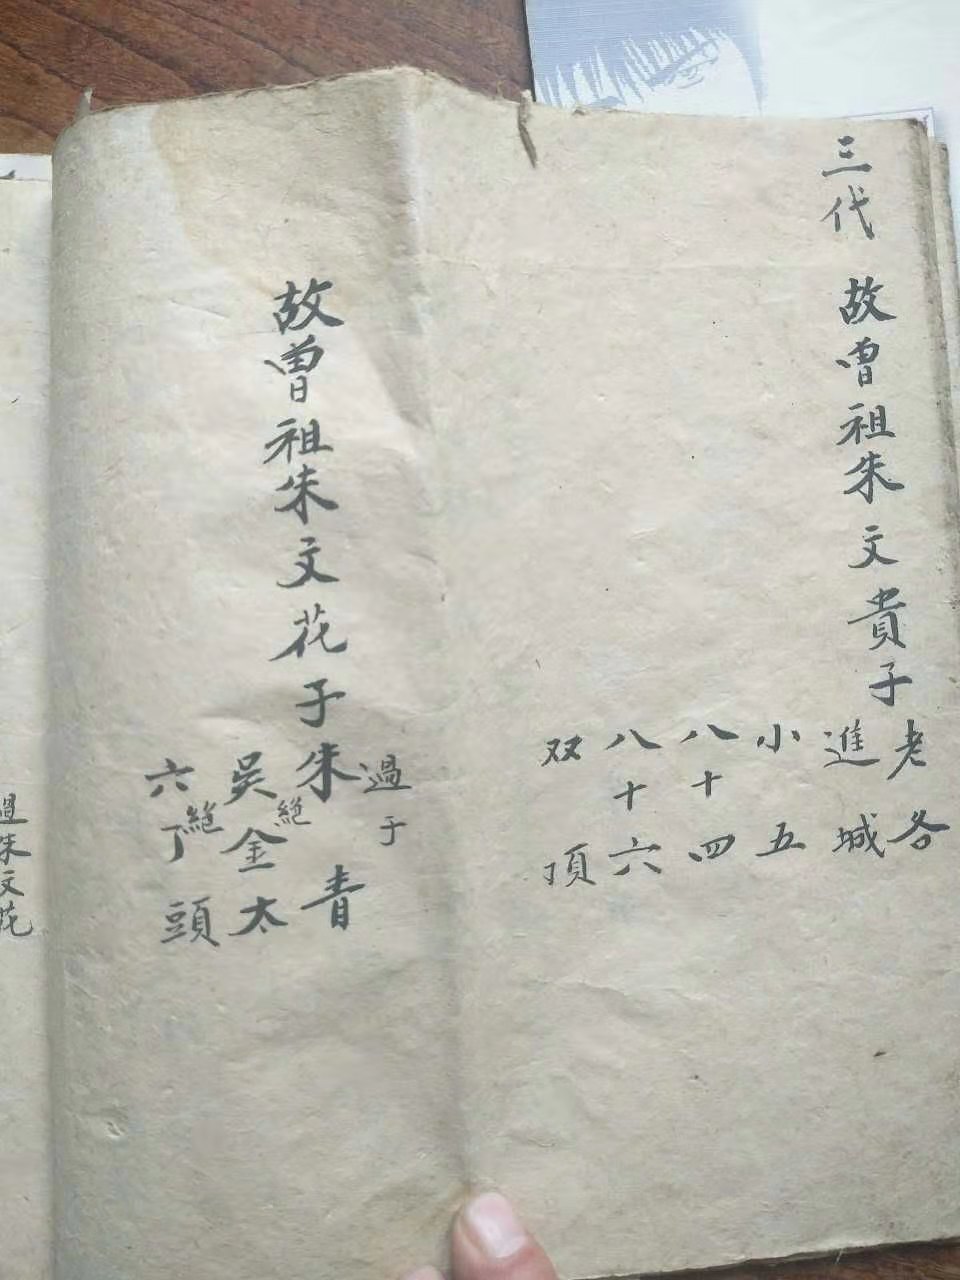 三代
故曽祖朱文貴子
老各
進城
小五
八十四
八十六
双頂
故曽祖朱文花子
過于
朱青
絕
吳金太
絕
六丁頭
過朱文花